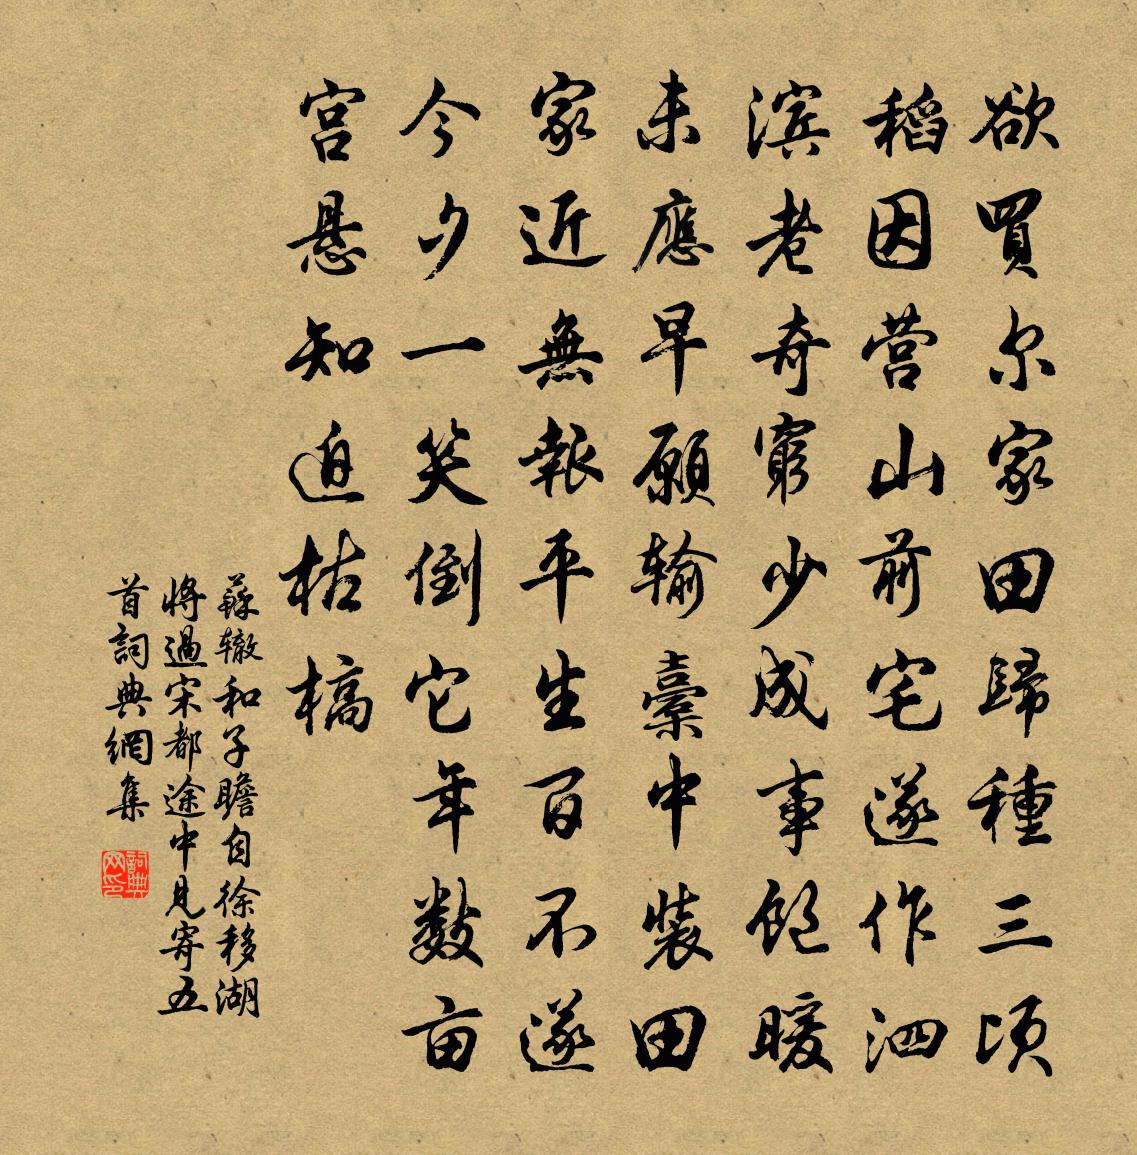 欲買尔家田歸種三頃
稻因营山前宅遂作泗
滨老奇窮少成事飽暖
未應早願输橐中裝田
家近無報平生百不遂
今夕一笑倒它年数亩
宫悬知迫枯槁
蘇辙和子瞻自徐移湖
将過宋都途中見寄五
首詞典網集
詞典网印